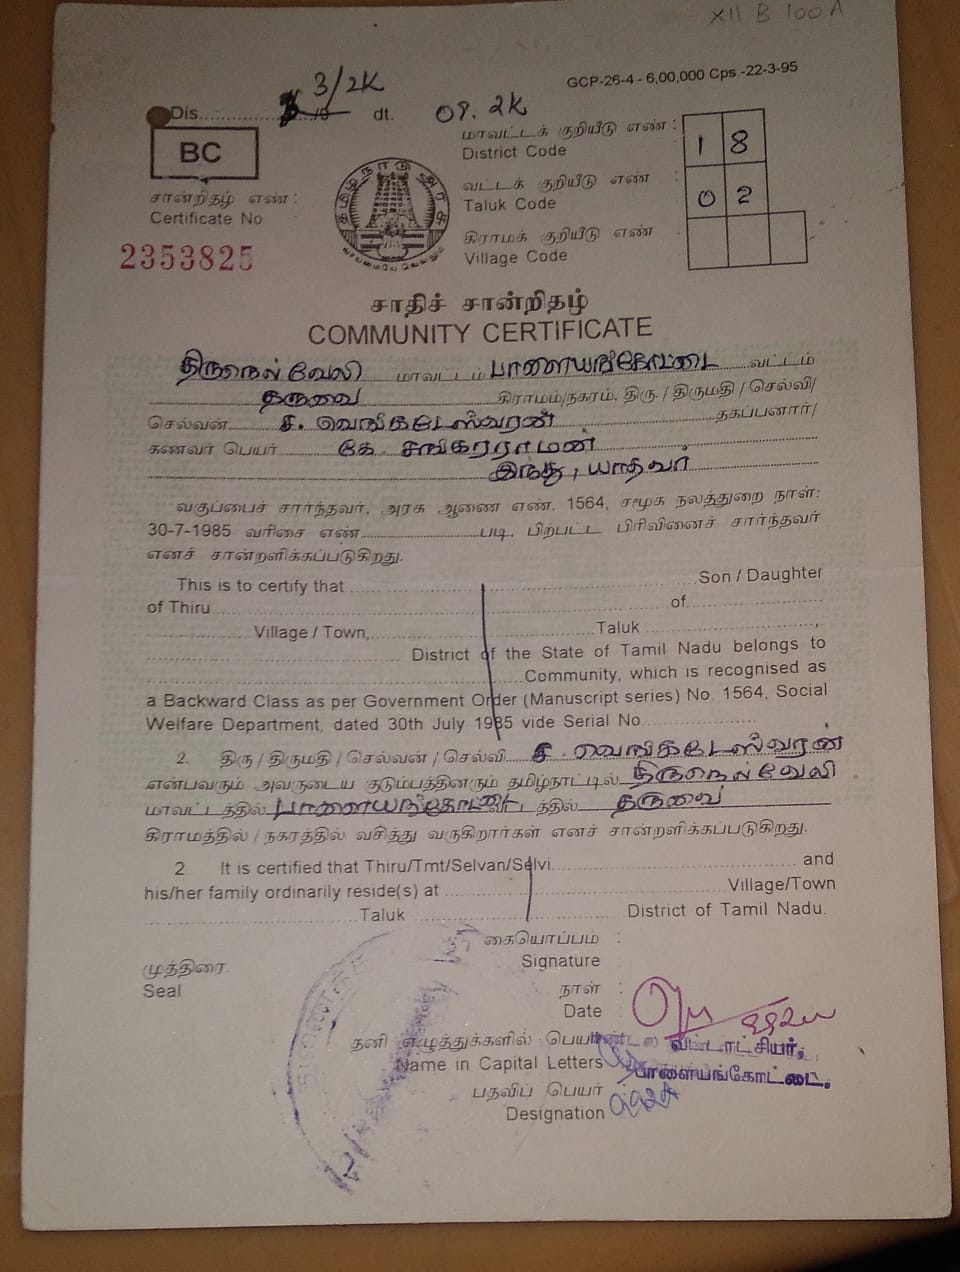 XII B 100 A
GCP-26-4 - 6,00,000 Cps.-22-3-95
Dis.............. 3/2K dt. 09. 2K
BC
மாவட்டக் குறியீடு எண் : 1 8
District Code
சான்றிதழ் எண் :
Certificate No
2353825
தமிழ்நாடு அரசு
வாய்மையே வெல்லும்
வட்டக் குறியீடு எண் : 0 2
Taluk Code
கிராமக் குறியீடு எண்
Village Code
சாதிச் சான்றிதழ்
COMMUNITY CERTIFICATE
திருநெல்வேலி மாவட்டம் பாளையங்கோட்டை வட்டம்
தருவை கிராமம்/நகரம், திரு / திருமதி / செல்வி/
செல்வன் ச. வெங்கடேஸ்வரன் தகப்பனார்/
கணவர் பெயர் கே. சங்கரராமன்
இந்து, யாதவர்
வகுப்பைச் சார்ந்தவர், அரசு ஆணை எண். 1564, சமூக நலத்துறை நாள்:
30-7-1985 வரிசை எண் படி, பிற்பட்ட பிரிவினைச் சார்ந்தவர்
எனச் சான்றளிக்கப்படுகிறது.
This is to certify that Son / Daughter
of Thiru of
Village / Town, Taluk
District of the State of Tamil Nadu belongs to
Community, which is recognised as
a Backward Class as per Government Order (Manuscript series) No. 1564, Social
Welfare Department, dated 30th July 1985 vide Serial No.
2. திரு / திருமதி / செல்வன் / செல்வி ச. வெங்கடேஸ்வரன்
என்பவரும் அவருடைய குடும்பத்தினரும் தமிழ்நாட்டில் திருநெல்வேலி
மாவட்டத்தில் பாளையங்கோட்டை த்தில் தருவை
கிராமத்தில் / நகரத்தில் வசித்து வருகிறார்கள் எனச் சான்றளிக்கப்படுகிறது.
2 It is certified that Thiru/Tmt/Selvan/Selvi and
his/her family ordinarily reside(s) at Village/Town
Taluk District of Tamil Nadu.
கையொப்பம் :
Signature
முத்திரை
Seal
நாள் :
Date
தனி எழுத்துக்களில் பெயர்
Name in Capital Letters
வட்டாட்சியர்,
பாளையங்கோட்டை.
பதவிப் பெயர்
Designation